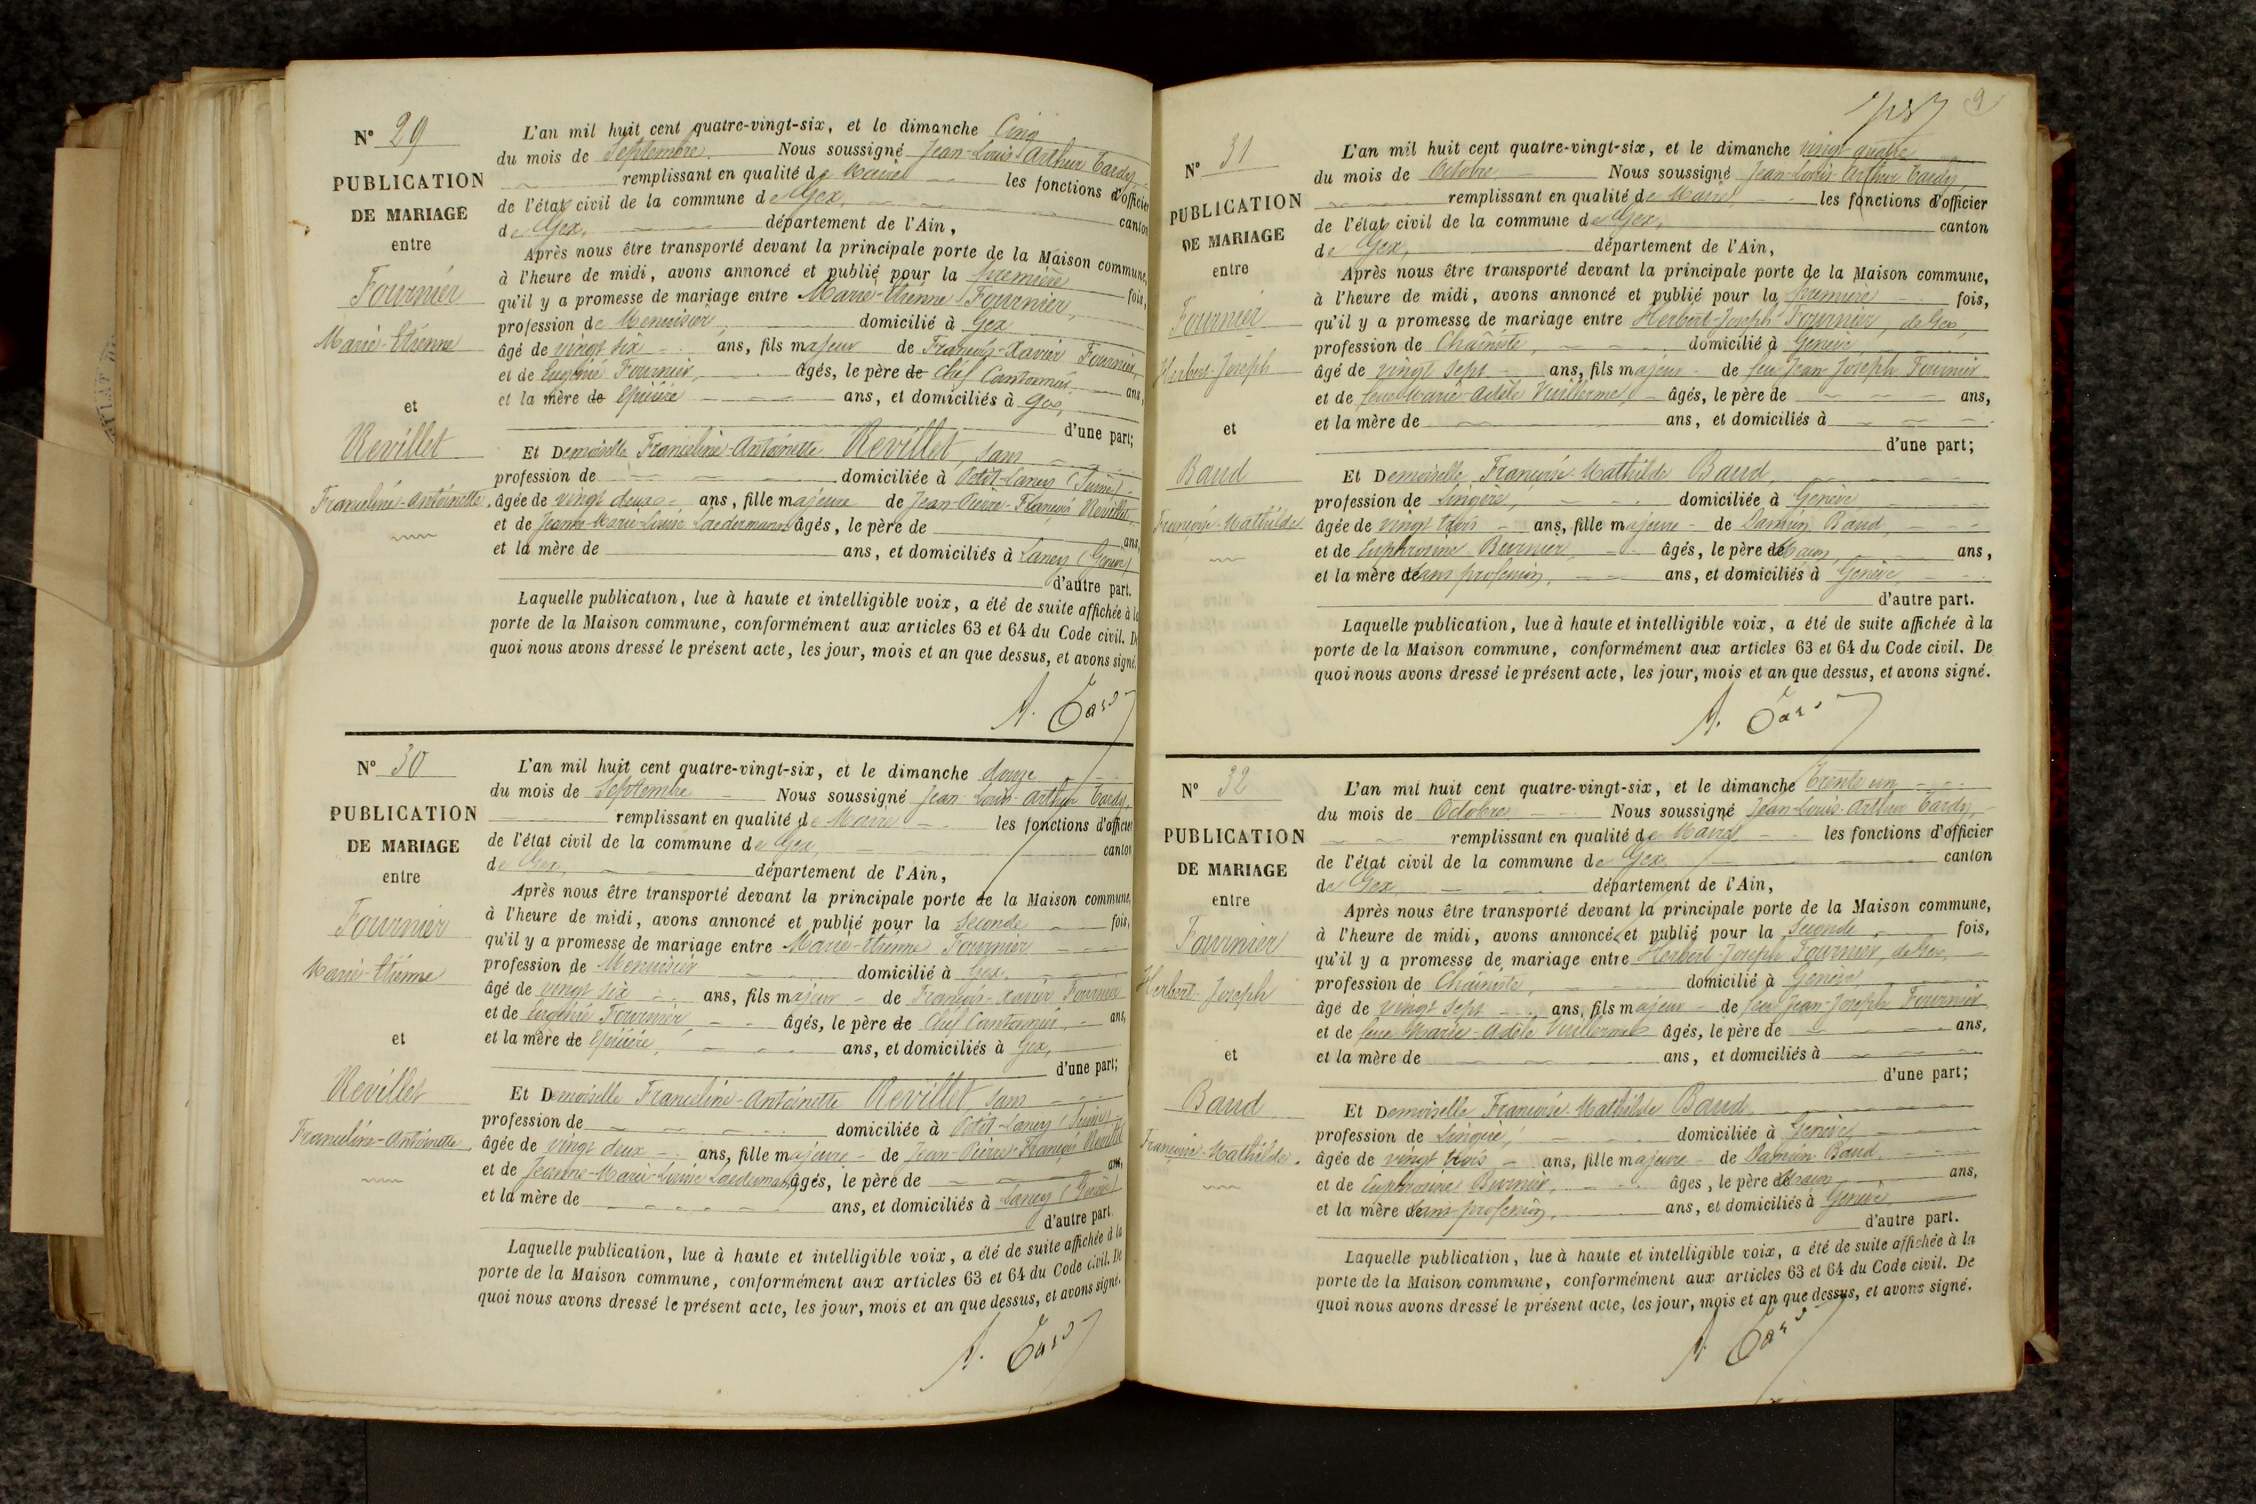 N° 29
PUBLICATION
DE MARIAGE
entre
Fournier
Marie-Etienne
et
Revillet
Franceline-Antoinette.
L'an mil huit cent quatre-vingt-six, et le dimanche Cinq
du mois de Septembre. Nous soussigné Jean-Louis Arthur Tardy,
remplissant en qualité de Maire les fonctions d'officier
de l'état civil de la commune de Gex, canton
de Gex, département de l'Ain,
Après nous être transporté devant la principale porte de la Maison commune,
à l'heure de midi, avons annoncé et publié pour la première fois,
qu'il y a promesse de mariage entre Marie-Etienne Fournier,
profession de Menuisier, domicilié à Gex
âgé de vingt six ans, fils majeur de François-Xavier Fournier,
et de Eugénie Fournier, âgés, le père de Chef Cantonnier ans,
et la mère de Epicière ans, et domiciliés à Gex,
d'une part;
Et Demoiselle Franceline-Antoinette Revillet, sans
profession de domiciliée à Petit-Lancy (Suisse)
âgée de vingt deux ans, fille majeure de Jean-Pierre-François Revillet,
et de Jeanne-Marie-Louise Laedermann âgés, le père de ans,
et la mère de ans, et domiciliés à Lancy (Genève)
d'autre part.
Laquelle publication, lue à haute et intelligible voix, a été de suite affichée à la
porte de la Maison commune, conformément aux articles 63 et 64 du Code civil. De
quoi nous avons dressé le présent acte, les jour, mois et an que dessus, et avons signé.
A. Tardy
N° 30
PUBLICATION
DE MARIAGE
entre
Fournier
Marie-Etienne
et
Revillet
Franceline-Antoinette.
L'an mil huit cent quatre-vingt-six, et le dimanche douze
du mois de Septembre Nous soussigné Jean-Louis-Arthur Tardy,
remplissant en qualité de Maire les fonctions d'officier
de l'état civil de la commune de Gex, canton
de Gex, département de l'Ain,
Après nous être transporté devant la principale porte de la Maison commune,
à l'heure de midi, avons annoncé et publié pour la seconde fois,
qu'il y a promesse de mariage entre Marie-Etienne Fournier
profession de Menuisier domicilié à Gex,
âgé de vingt six ans, fils majeur de François-Xavier Fournier
et de Eugénie Fournier, âgés, le père de Chef Cantonnier ans,
et la mère de Epicière, ans, et domiciliés à Gex,
d'une part;
Et Demoiselle Franceline-Antoinette Revillet sans
profession de domiciliée à Petit-Lancy (Suisse)
âgée de vingt deux ans, fille majeure de Jean-Pierre-François Revillet
et de Jeanne-Marie-Louise Laedermann, âgés, le père de ans,
et la mère de ans, et domiciliés à Lancy (Genève)
d'autre part.
Laquelle publication, lue à haute et intelligible voix, a été de suite affichée à la
porte de la Maison commune, conformément aux articles 63 et 64 du Code civil. De
quoi nous avons dressé le présent acte, les jour, mois et an que dessus, et avons signé.
A. Tardy
9
N° 31
PUBLICATION
DE MARIAGE
entre
Fournier
Herbert-Joseph
et
Baud
Françoise-Mathilde
L'an mil huit cent quatre-vingt-six, et le dimanche vingt-quatre
du mois de Octobre Nous soussigné Jean-Louis-Arthur Tardy
remplissant en qualité de Maire, les fonctions d'officier
de l'état civil de la commune de Gex, canton
de Gex, département de l'Ain,
Après nous être transporté devant la principale porte de la Maison commune,
à l'heure de midi, avons annoncé et publié pour la première fois,
qu'il y a promesse de mariage entre Herbert-Joseph Fournier, de Gex,
profession de Chaîniste, domicilié à Genève
âgé de vingt sept ans, fils majeur de feu Jean-Joseph Fournier
et de feue Marie-Adèle Vuillerme, âgés, le père de ans,
et la mère de ans, et domiciliés à
d'une part;
Et Demoiselle Françoise-Mathilde Baud,
profession de Lingère, domiciliée à Genève
âgée de vingt trois ans, fille majeure de Damien Baud,
et de Euphrosine Burnier, âgés, le père de Maçon, ans,
et la mère de sans profession, ans, et domiciliés à Genève
d'autre part.
Laquelle publication, lue à haute et intelligible voix, a été de suite affichée à la
porte de la Maison commune, conformément aux articles 63 et 64 du Code civil. De
quoi nous avons dressé le présent acte, les jour, mois et an que dessus, et avons signé.
A. Tardy
N° 32
PUBLICATION
DE MARIAGE
entre
Fournier
Herbert-Joseph
et
Baud
Françoise-Mathilde.
L'an mil huit cent quatre-vingt-six, et le dimanche trente un
du mois de Octobre Nous soussigné Jean-Louis-Arthur Tardy,
remplissant en qualité de Maire les fonctions d'officier
de l'état civil de la commune de Gex, canton
de Gex département de l'Ain,
Après nous être transporté devant la principale porte de la Maison commune,
à l'heure de midi, avons annoncé et publié pour la seconde fois,
qu'il y a promesse de mariage entre Herbert-Joseph Fournier, de Gex,
profession de Chaîniste, domicilié à Genève,
âgé de vingt sept ans, fils majeur de feu Jean-Joseph Fournier
et de feue Marie-Adèle Vuillerme âgés, le père de ans,
et la mère de ans, et domiciliés à
d'une part;
Et Demoiselle Françoise-Mathilde Baud
profession de Lingère, domiciliée à Genève
âgée de vingt trois ans, fille majeure de Damien Baud
et de Euphrosine Burnier, âges, le père de Maçon ans,
et la mère de sans profession, ans, et domiciliés à Genève,
d'autre part.
Laquelle publication, lue à haute et intelligible voix, a été de suite affichée à la
porte de la Maison commune, conformément aux articles 63 et 64 du Code civil. De
quoi nous avons dressé le présent acte, les jour, mois et an que dessus, et avons signé.
A. Tardy